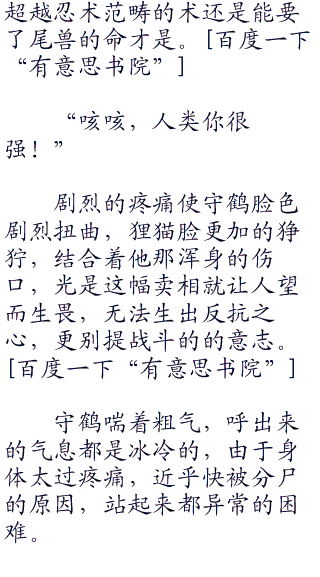 超越忍术范畴的术还是能要
了尾兽的命才是。[百度一下
“有意思书院”]
“咳咳，人类你很
强！”
剧烈的疼痛使守鹤脸色
剧烈扭曲，狸猫脸更加的狰
狞，结合着他那浑身的伤
口，光是这幅卖相就让人望
而生畏，无法生出反抗之
心，更别提战斗的的意志。
[百度一下“有意思书院”]
守鹤喘着粗气，呼出来
的气息都是冰冷的，由于身
体太过疼痛，近乎快被分尸
的原因，站起来都异常的困
难。